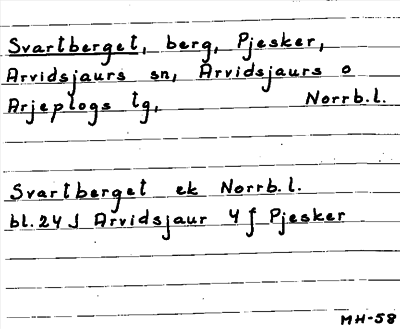 Svartberget, berg, Pjesker,
Arvidsjaurs sn, Arvidsjaurs o
Arjeplogs tg, Norrb.l.
Svartberget ek Norrb.l.
bl. 24 J Arvidsjaur 4 f Pjesker
MH-58